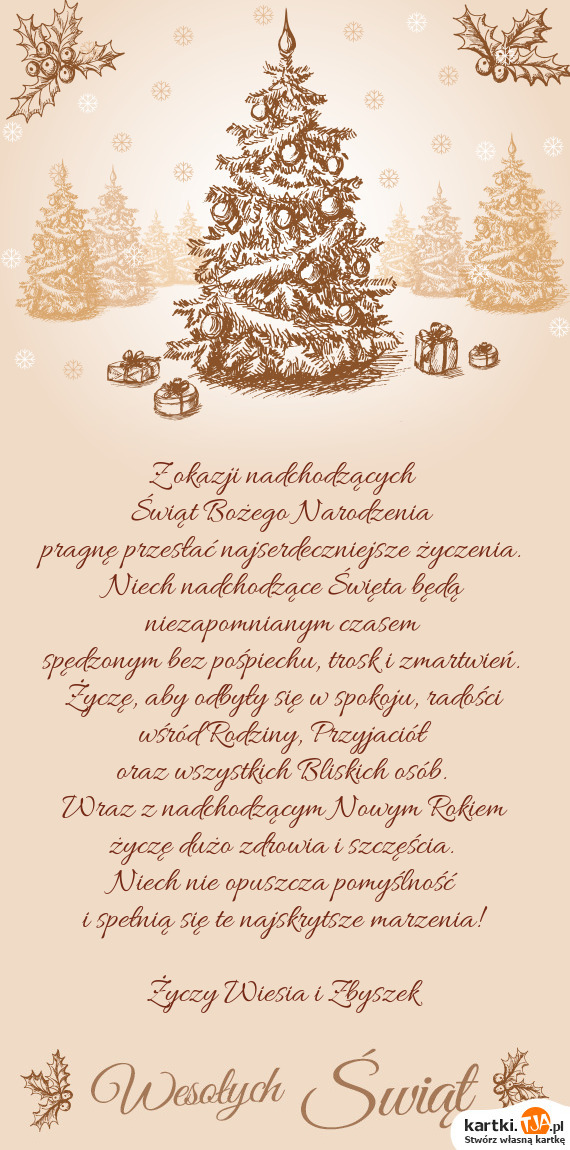 Z okazji nadchodzących
Świąt Bożego Narodzenia
pragnę przesłać najserdeczniejsze życzenia.
Niech nadchodzące Święta będą
niezapomnianym czasem
spędzonym bez pośpiechu, trosk i zmartwień.
Życzę, aby odbyły się w spokoju, radości
wśród Rodziny, Przyjaciół
oraz wszystkich Bliskich osób.
Wraz z nadchodzącym Nowym Rokiem
życzę dużo zdrowia i szczęścia.
Niech nie opuszcza pomyślność
i spełnią się te najskrytsze marzenia!
Życzy Wiesia i Zbyszek
Wesołych Świąt
kartki.TJA.pl
Stwórz własną kartkę